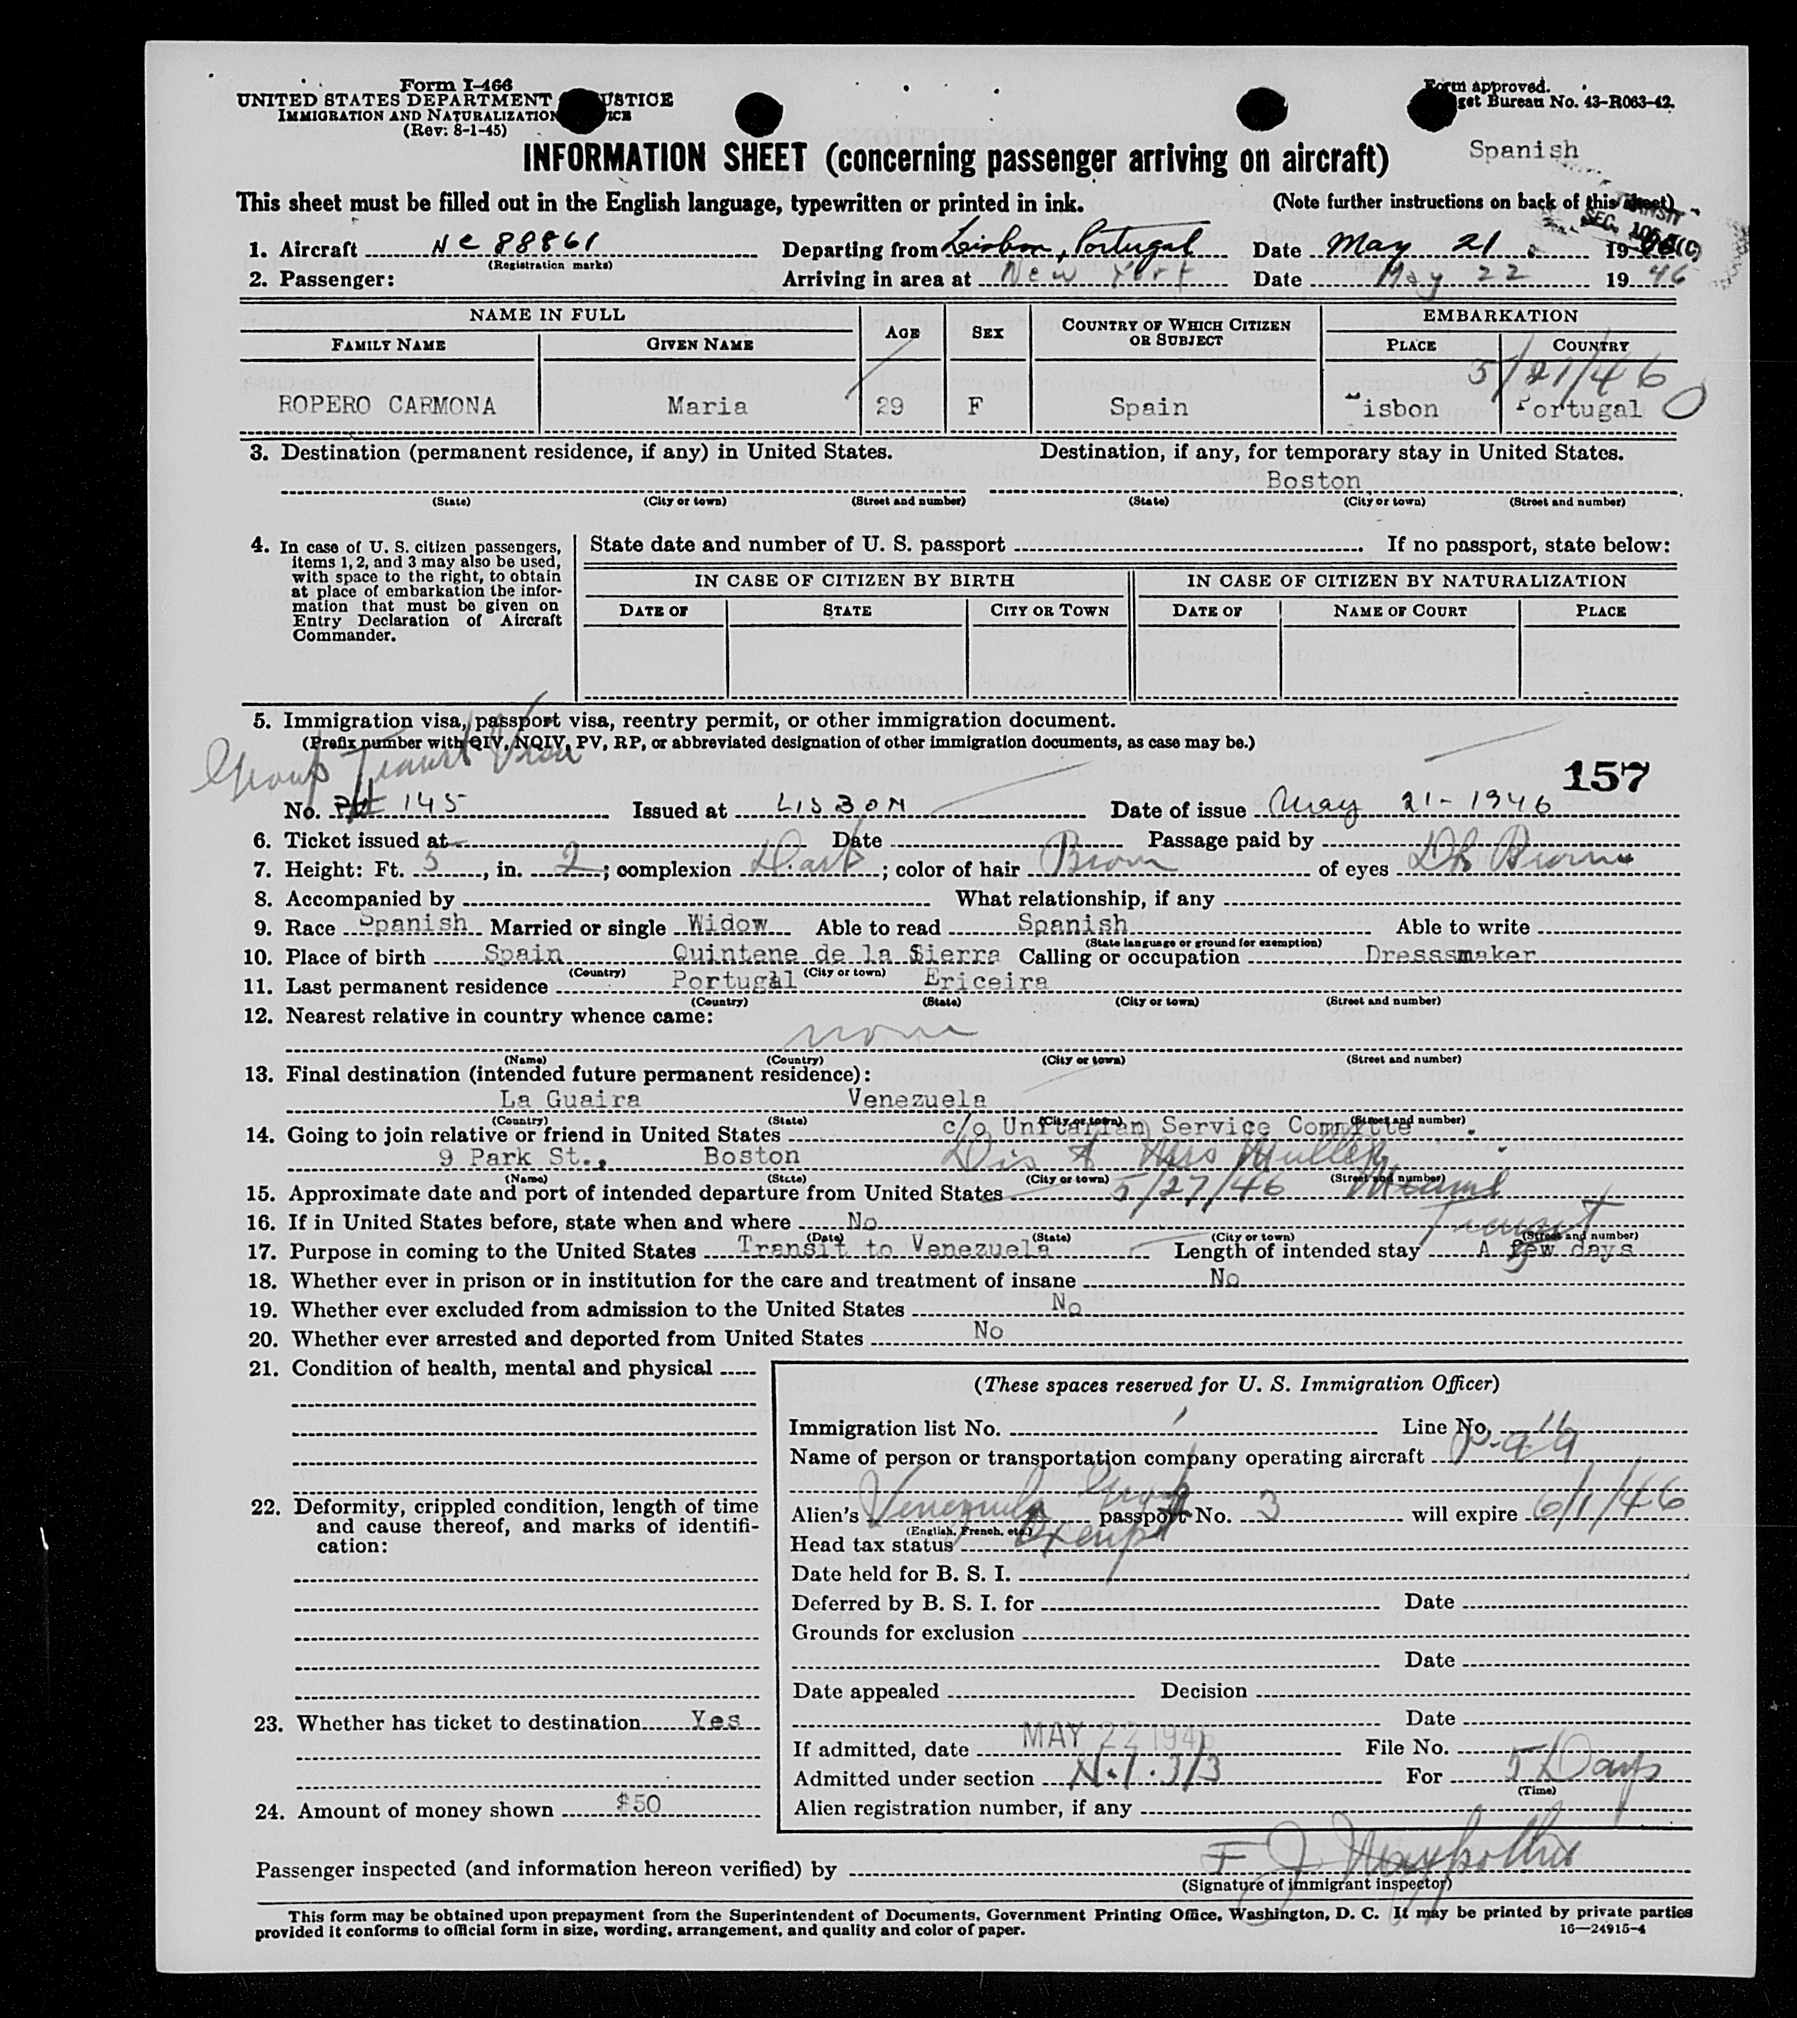 Form I-466
UNITED STATES DEPARTMENT JUSTICE
IMMIGRATION AND NATURALIZATION
(Rev: 8-1-45)
Form approved.
Bureau No. 43-R063-42.
INFORMATION SHEET (concerning passenger arriving on aircraft)
Spanish
This sheet must be filled out in the English language, typewritten or printed in ink.
(Note further instructions on back of this sheet)
TRANSIT
SEC. (C)
1. Aircraft NC 88861 Departing from Lisbon, Portugal Date May 21 19
(Registration marks)
2. Passenger: Arriving in area at New York Date May 22 1946
NAME IN FULL AGE SEX COUNTRY OF WHICH CITIZEN OR SUBJECT EMBARKATION
FAMILY NAME GIVEN NAME PLACE COUNTRY
5/21/46
ROPERO CARMONA Maria 29 F Spain Lisbon Portugal
3. Destination (permanent residence, if any) in United States. Destination, if any, for temporary stay in United States.
Boston
(State) (City or town) (Street and number) (State) (City or town) (Street and number)
4. In case of U. S. citizen passengers, items 1, 2, and 3 may also be used, with space to the right, to obtain at place of embarkation the information that must be given on Entry Declaration of Aircraft Commander.
State date and number of U. S. passport . If no passport, state below:
IN CASE OF CITIZEN BY BIRTH IN CASE OF CITIZEN BY NATURALIZATION
DATE OF STATE CITY OR TOWN DATE OF NAME OF COURT PLACE
5. Immigration visa, passport visa, reentry permit, or other immigration document.
(Prefix number with QIV, NQIV, PV, RP, or abbreviated designation of other immigration documents, as case may be.)
Group Transit Visa
157
No. 145 Issued at LISBON Date of issue May 21-1946
6. Ticket issued at Date Passage paid by
7. Height: Ft. 5, in. 2; complexion Dark; color of hair Brown of eyes Dk Brown
8. Accompanied by What relationship, if any
9. Race Spanish Married or single Widow Able to read Spanish Able to write
(State language or ground for exemption)
10. Place of birth Spain Quintene de la Sierra Calling or occupation Dresssmaker
(Country) (City or town)
11. Last permanent residence Portugal Ericeira
(Country) (State) (City or town) (Street and number)
12. Nearest relative in country whence came:
none
(Name) (Country) (City or town) (Street and number)
13. Final destination (intended future permanent residence):
La Guaira Venezuela
(Country) (State) (City or town) (Street and number)
14. Going to join relative or friend in United States c/o Unitarian Service Committe
9 Park St., Boston Mrs Muller
(Name) (State) (City or town) (Street and number)
15. Approximate date and port of intended departure from United States 5/27/46 Miami
16. If in United States before, state when and where No
Transit
(Date) (State) (City or town) (Street and number)
17. Purpose in coming to the United States Transit to Venezuela Length of intended stay A few days
18. Whether ever in prison or in institution for the care and treatment of insane No
19. Whether ever excluded from admission to the United States No
20. Whether ever arrested and deported from United States No
21. Condition of health, mental and physical
22. Deformity, crippled condition, length of time and cause thereof, and marks of identification:
23. Whether has ticket to destination Yes
24. Amount of money shown $50
(These spaces reserved for U. S. Immigration Officer)
Immigration list No. 1 Line No. 16
Name of person or transportation company operating aircraft P.a.a
Alien's Venezuela Group passport No. 3 will expire 6/1/46
(English, French, etc.)
Head tax status Exempt
Date held for B. S. I.
Deferred by B. S. I. for Date
Grounds for exclusion
Date
Date appealed Decision
Date
If admitted, date MAY 22 1946 File No.
Admitted under section N.I. 3/3 For 5 Days
(Time)
Alien registration number, if any
Passenger inspected (and information hereon verified) by
(Signature of immigrant inspector)
This form may be obtained upon prepayment from the Superintendent of Documents, Government Printing Office, Washington, D. C. It may be printed by private parties
provided it conforms to official form in size, wording, arrangement, and quality and color of paper.
16—24915-4